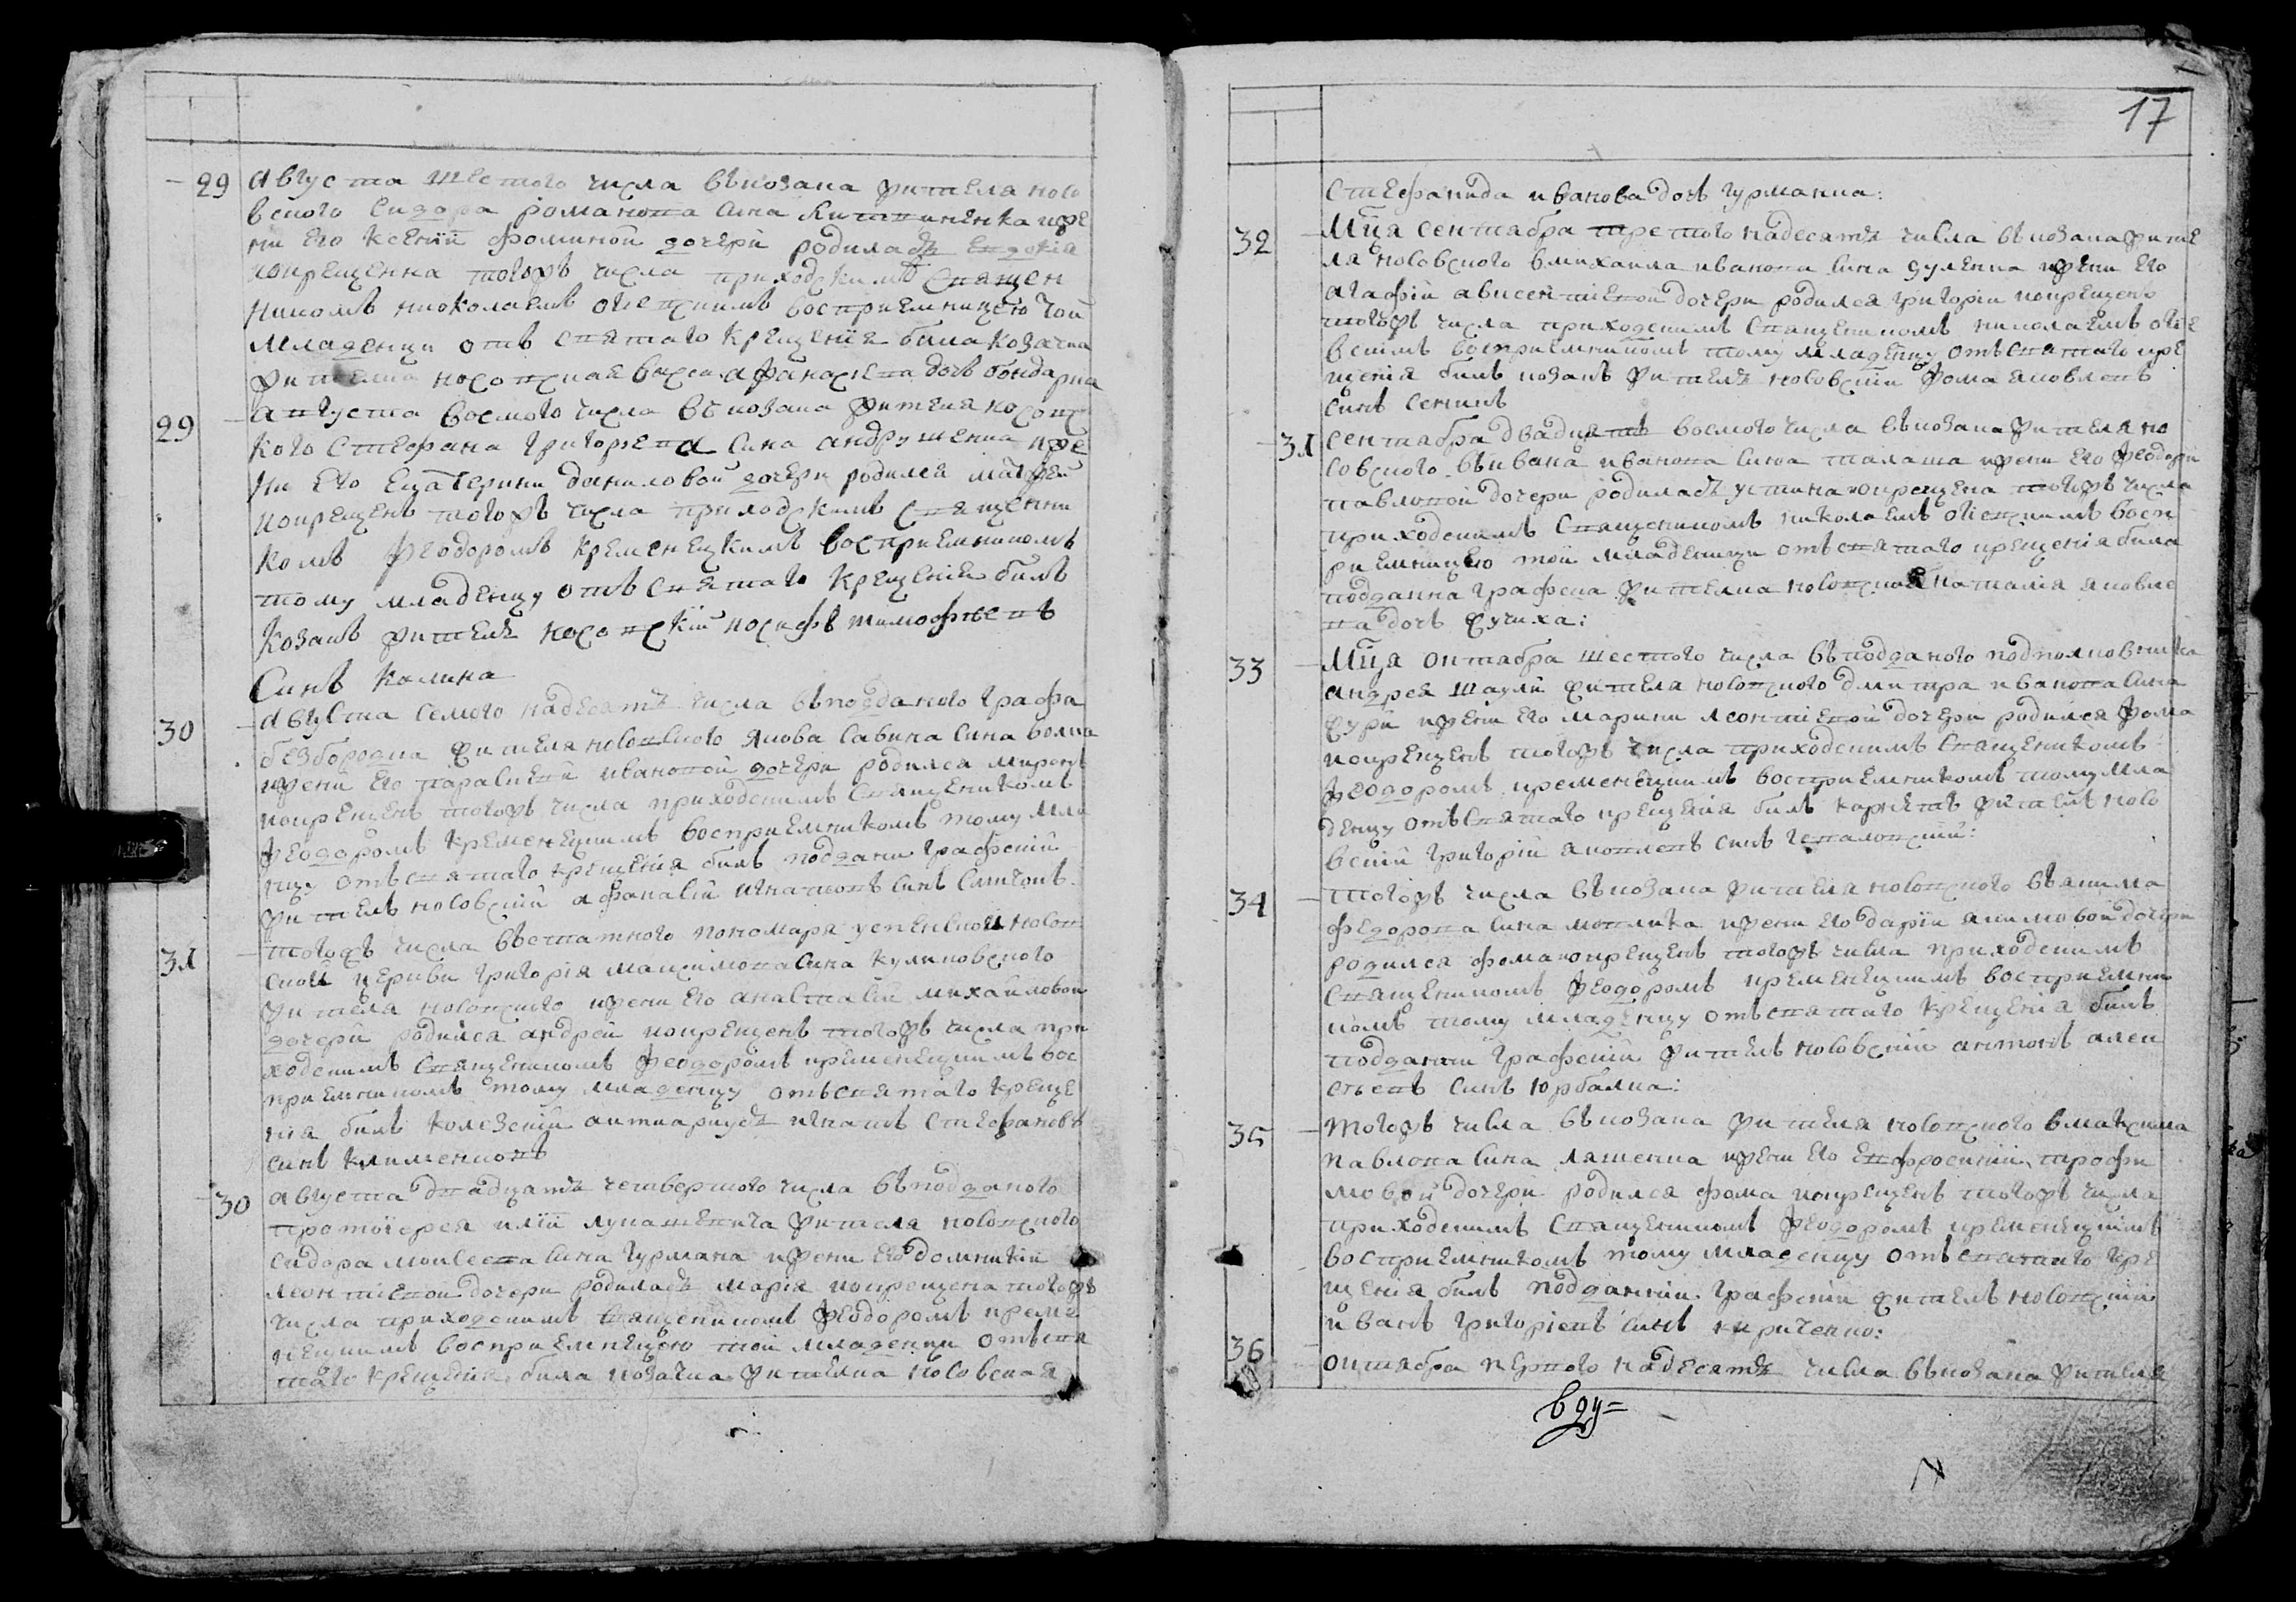 29 Августа шестого числа въ козака жителя носо
вского Сидора романова сина китченка и же
ни его ксенїи фоминой дочери родилась Евдокїя
и окрещенна тогожъ числа приходскимъ священ
никомъ николаемъ восприемницею той
младенци отъ святаго крещенїя била козачка
жителка носовская афанасиева дочъ бондарка
29 августа восмого числа въ козака жителя носовс
кого Стефана григориева сина андрушенка и же
ни его Екатерини даниловой дочери родился матфей
и окрещенъ тогожъ числа приходскимъ священни
комъ феодоромъ кременецкимъ восприемникомъ
тому младенцу отъ святаго крещенїя билъ
козакъ житель носовскїй иосифъ тимофѣевъ
Синъ калина
30 Августа семого надесять числа въ подданого графа
безбородка жителя носовского якова савина сина волка
и жени его парасцевїи ивановой дочери родился миронъ
и окрещенъ тогожъ числа приходскимъ священикомъ
феодоромъ кременецкимъ восприемникомъ тому мла
нцу отъ святаго крещенїя билъ поддани графскїй
житель носовскїй афанасїй игнатовъ синъ
31 тогожъ числа въ статного пономаря успенской носов
ской церкви григорїя максимова сина куликовского
жителя носовского и жени его анастасїи михайловой
дочери родился андрей и окрещенъ тогожъ числа при
ходскимъ священикомъ феодоромъ кременецкимъ вос
приемникомъ тому младенцу отъ святаго креще
нїя билъ колезскїй актиариусъ игнатъ стефановъ
синъ клименковъ
30 августа двадцать четвертого числа въ подданого
протоїерея илїи лукашевича жителя носовского
сидора моисеева сина гурмана и жени его домникїи
леонтїевой дочери родилась марїя и окрещена тогожъ
числа приходскимъ священикомъ феодоромъ креме
нецкимъ восприемницею той младенци отъ свя
таго крещенїя била козачка жителка носовская
17
Стефанида иванова дочъ гурманка:
32 Мц̃я сентабра третого надесять числа въ козака жите
ля носовского в михаила иванова сина дуленка и жени его
агафїи авксентїевой дочери родился григорїи и окрещенъ
тогожъ числа приходскимъ священикомъ николаемъ
восприемникомъ тому младенцу отъ святаго кре
щенїя билъ козакъ житель носовскїи фома яковлевъ
синъ
31 сентабра двадцать восмого числа въ козака жителя но
совского въ ивана иванова сина талаша и жени его феодори
павловой дочери родилась устина и окрещена тогожъ числа
приходскимъ священикомъ николаемъ восп
риемницею той младенци отъ святаго крещенїя била
подданка графска жителка носовская наталїя яковле
ва дочъ жучиха:
33 Мц̃я октабра шестого числа въ подданого подполковника
андрея шаули жителя носовского дмитра иванова сина
жури и жени его марини леонтїевой дочери родился фома
и окрещенъ тогожъ числа приходскимъ священикомъ
феодоромъ кременецкимъ восприемникомъ тому мла
денцу отъ святаго крещенїя билъ корнетъ житель носо
вскїй григорїй яковлевъ синъ
34 тогожъ числа въ козака жителя носовского въ якима
федорова сина мовлика и жени его дарїи якимовой дочери
родился фома и окрещенъ тогожъ числа приходскимъ
священикомъ феодоромъ кременецкимъ восприемни
комъ тому младенцу отъ святаго крещенїя билъ
поддани графскїй житель носовскїй антонъ алек
сѣевъ синъ юрбалка:
35 тогожъ числа въ козака жителя носовского в максима
павлова сина ляшенка и жени его Евфросинїи трофи
мовой дочери родился фома и окрещенъ тогожъ числа
приходскимъ священикомъ феодоромъ кременецкимъ
восприемникомъ тому младенцу отъ святаго кре
щенїя билъ подданнїй графскїй житель носовскїй
иванъ григорїевъ синъ кириченко:
36 октабра первого надесять числа въ козака жителя